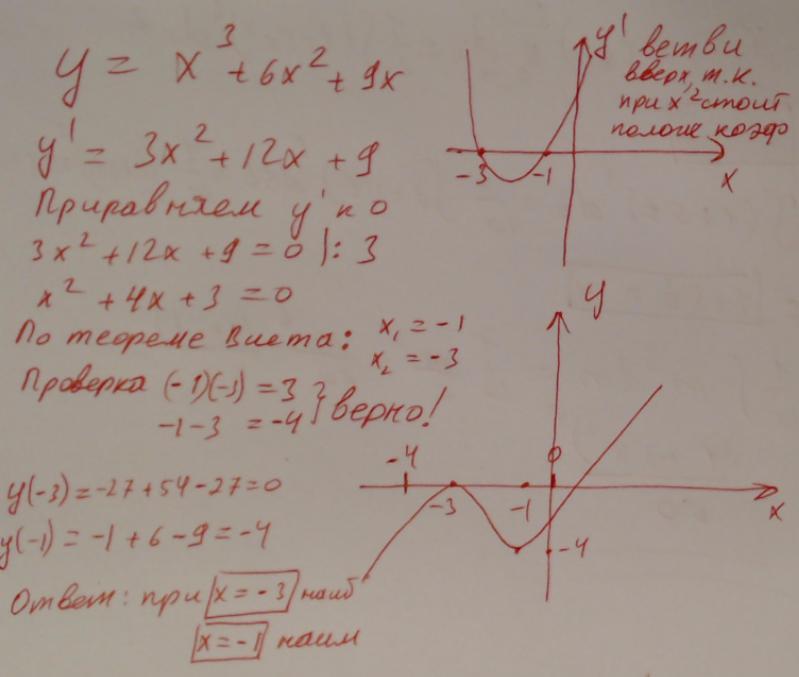 y = x³ + 6x² + 9x
y' = 3x² + 12x + 9
Приравняем y' к 0
3x² + 12x + 9 = 0 | : 3
x² + 4x + 3 = 0
По теореме Виета: x₁ = -1
x₂ = -3
Проверка (-1)(-3) = 3
-1 - 3 = -4 } верно!
y(-3) = -27 + 54 - 27 = 0
y(-1) = -1 + 6 - 9 = -4
Ответ: при x = -3 наиб
x = -1 наим
y' ветви
вверх, т.к.
при x² стоит
полож коэф
-3 -1 x
y
-4 -3 -1 0 x
-4